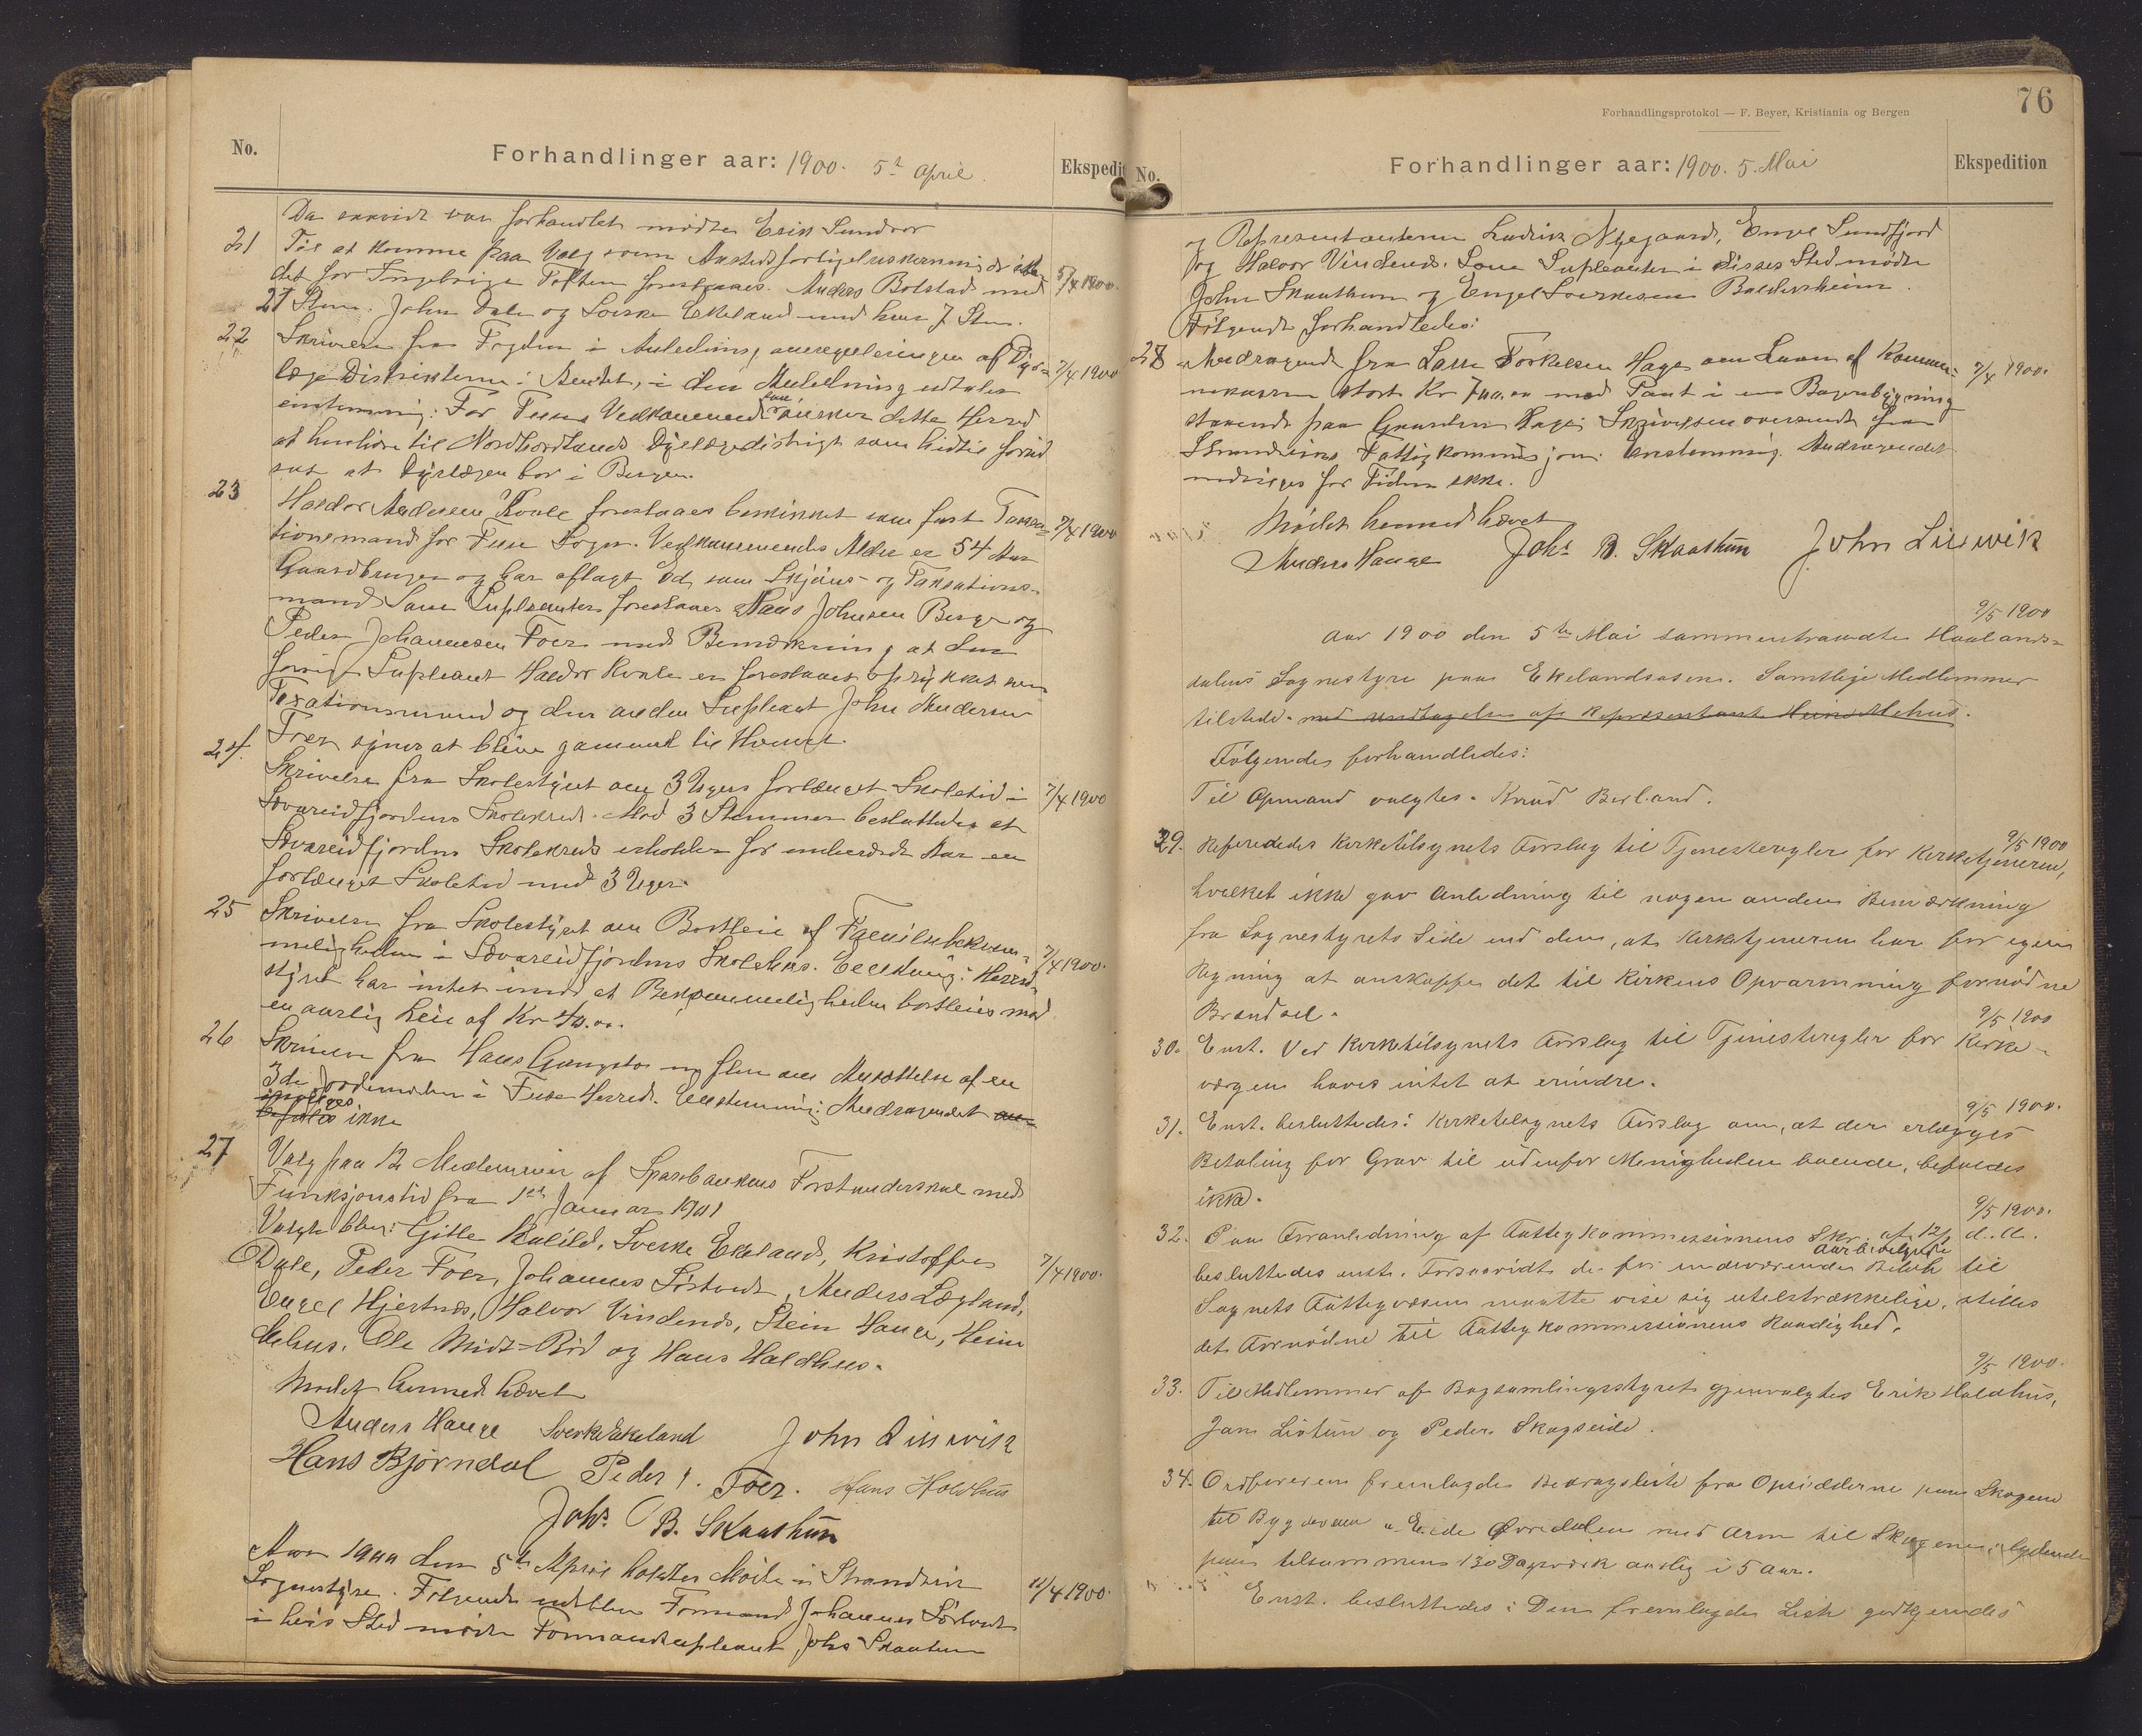 No.
Forhandlinger aar: 1900. 5te april.
Ekspedit
Da saavidt var forhandlet mødte Erik Sundvor
21 Til at komme paa Valg som
det for Foltern forestaaes. Anders Bolstad med 5/4 1900.
27 Stem. John Dale og Sverke Ekeland med hver 7 Stm.
22 Skrivelse fra Fogden i Anledning omreguleringen af Dyr=
lægeDistrikterne: Amtet, i den Anledning udtales 7/4 1900
enstemmig: For Fuses Vedkommende ønsker dette Herred
at henhøre til Nordhordlands Dyrlægedistrigt som hidtil forud
sat at Dyrlægen bor i Bergen.
23 Haldor Andersen Kvale forestaaes beskikket som fast Taxsa=
tionsmand for Fuse Sogn. Vedkommendes Alder er 54 Aar 7/4 1900
Gaardbruger og har aflagt Ed som Skjøns- og Taksations-
mand Som Supleanter forestaaes Hans Johnsen Berge og
Peder Johannesen Foer med Bemærkning at den
forrige Supleant Haldor Kvale er forestaaet oprykket som
Taxationsmand og den anden Supleant John Andersen
Foer synes at blive gammel til Hvervet.
24. Skrivelse fra Skolestyret om 3 Ugers forlænget Skoletid i 7/4 1900
Sævareidfjordens Skolekreds. Mod 3 Stemmer besluttedes at
Sævareidfjorden Skolekreds erholder for indeværende Aar en
forlænget Skoletid med 3 Uger.
25 Skrivelse fra Skolestyret om Bortleie af Familiebekvem=
meligheden i Sævareidfjordens Skolehus. Enstemig: Herred= 7/4 1900.
styret har intet imod at Bekvemmeligheden bortleies mod
en aarlig Leie af Kr 40.00.
26 Skrivelse fra Hans Gangstø m flere om Ansættelse af en
3die Jordemoder i Fuse Herred. Enstemmig: Andragendet an=
befales ikke
27 Valg paa 12 Medlemmer af Sparebankens Forstanderskab med
Funksjonstid fra 1ste Januar 1901
Valgte blev: Gitle Kalild, Sverke Ekeland, Kristoffer
Dale, Peder Foer, Johannes Sørtveit, Anders Lægland, 7/4 1900.
Engel Hjertnæs, Halvor Vindenes, Stein Hauge, Heine
Mehus, Ole Midt-Bø og Hans Haldhus.
Mødet hermed hævet
Anders Hauge Sverke Ekeland John Lisevik
Hans Bjørndal Peder J. Foer. Hans Holdhus
Johs. B. Skaathun
Aar 1900 den 5te April holdtes Møde i Strandvik
Sognestyre. Følgende udblev Formand Johannes Sørtveit 11/4 1900.
i hvis Sted mødte Formandsupleant Johs Skaatun
76
Forhandlingsprotokol — F. Beyer, Kristiania og Bergen
No.
Forhandlinger aar: 1900. 5. Mai
Ekspedition
og Representanterne Ludvik Nygaard, Engel Sundfjord
og Halvor Vindenes. Som Supleanter i disses Sted mødte
John Skaathun og Engel Sverkesen Baldersheim.
Følgende forhandledes:
28 Andragende fra Lasse Torkelsen Hage om Laan af Kommu= 7/4 1900.
nekassen stort Kr med Pant i en Bygning
staaende paa Gaarden Hage. Skrivelsen oversendt fra
Strandviks Fattigkommisjon. Enstemmig. Andragendet
indvilges for Tiden ikke.
Mødet hermed hævet
Anders Hauge Johs B. Skaathun John Lisevik
9/5 1900
Aar 1900 den 5te Mai sammentraadte Haalands=
dalens Sognestyre paa Ekelandsosen. Samtlige Medlemmer
tilstede. med undtagelse af Repræsentant Heine Mehus.
Følgende forhandledes:
Til Opmand valgtes. Knud Berland.
29. Refereredes Kirketilsynets Forslag til Tjenesteregler for Kirketjeneren, 9/5 1900
hvilket ikke gav Anledning til nogen anden Bemærkning
fra Sognestyrets Side end den, at Kirketjeneren har for egen
Regning at anskaffe det til Kirkens Opvarmning fornødne
Brændsel.
30. Enst. Ved Kirketilsynets Forslag til Tjenesteregler for Kirke- 9/5 1900
værgen haves intet at erindre.
31. Enst. besluttedes: Kirketilsynets Forslag om, at der erlægges 9/5 1900.
Betaling for Grav til udenfor Menigheden boende, befordes
ikke.
32. Paa Foranledning af Fattigkommissionens Skr. af 12/1 d.A. 9/5 1900.
besluttedes enst. Forsaavidt de for indeværende Aar bevilgede Beløb til
Sognets Fattigvæsen maatte vise sig utilstrækkelige, stilles
det Fornødne til Fattigkommissionens Raadighed.
9/5 1900.
33. Til Medlemmer af Bogsamlingsstyret gjenvalgtes Erik Holdhus,
Jan Livtun og Peder Skogseide.
34. Ordføreren fremlagde Bidragsliste fra Opsidderne paa Skogene
til Bygdeveien Eide Øvredalen med Arm til Skogene, lydende
paa tilsammens 130 Dagsværk aarlig i 5 Aar.
Enst. besluttedes: Den fremlagde Liste godkjendes